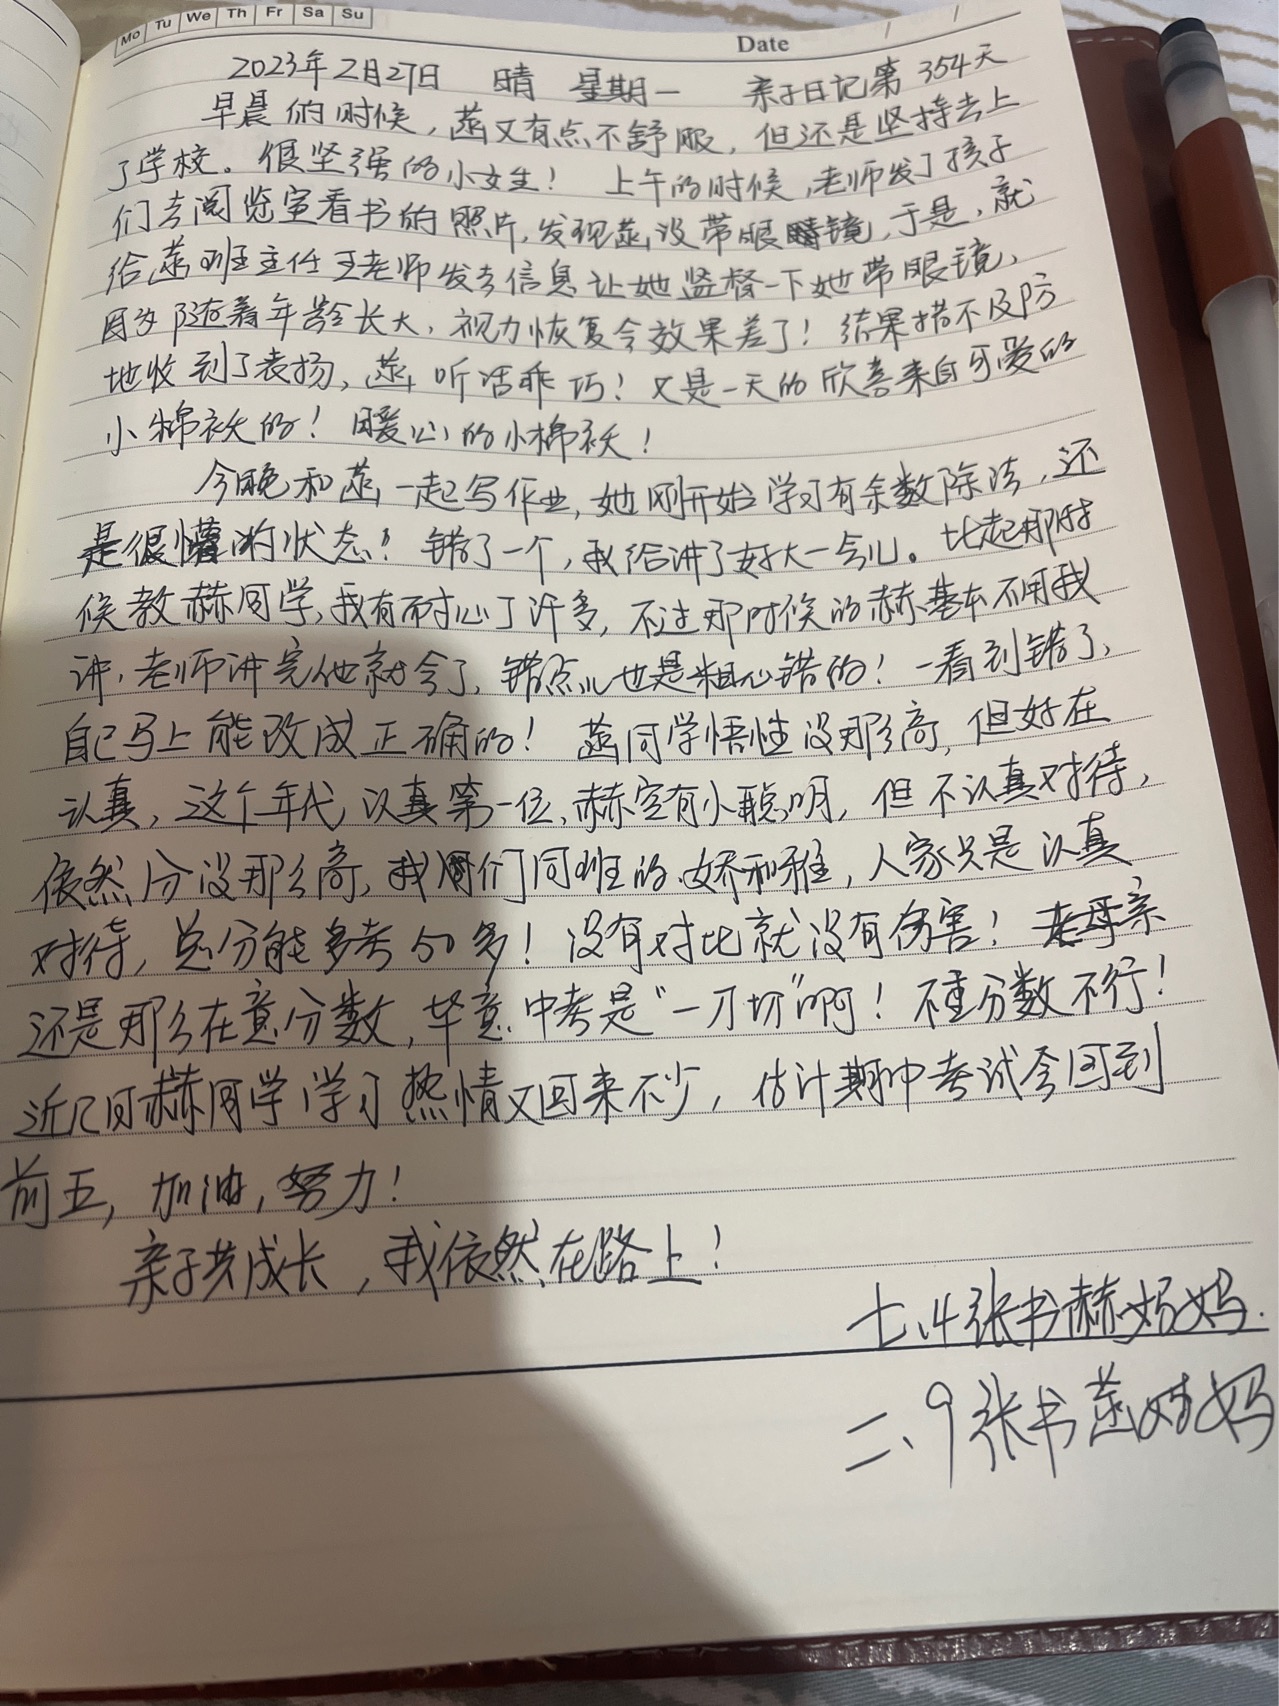 Mo Tu We Th Fr Sa Su
Date / /
2023年2月27日 晴 星期一 亲子日记第354天
早晨的时候,菡又有点不舒服,但还是坚持去上
了学校。很坚强的小女生! 上午的时候,老师发了孩子
们去阅览室看书的照片,发现菡没带眼镜,于是,就
给菡班主任王老师发去信息让她监督一下她带眼镜,
因为随着年龄长大,视力恢复会效果差了!结果措不及防
地收到了表扬,菡,听话乖巧!又是一天的欣喜来自可爱的
小棉袄的!暖心的小棉袄!
今晚和菡一起写作业,她刚开始学习有余数除法,还
是很懵的状态!错了一个,我给讲了好大一会儿。比起那时
候教赫同学,我有耐心了许多,不过那时候的赫基本不用我
讲,老师讲完他就会了,错点儿也是粗心错的!一看到错了,
自己马上能改成正确的!菡同学悟性没那么高,但好在
认真,这个年代,认真第一位,赫空有小聪明,但不认真对待,
依然分没那么高,我们同班的娇和雅,人家只是认真
对待,总分能多考50多!没有对比就没有伤害!老母亲
还是那么在意分数,毕竟中考是“一刀切”啊!不重分数不行!
近几日赫同学学习热情又回来不少,估计期中考试会回到
前五,加油,努力!
亲子共成长,我依然在路上!
七、4张书赫妈妈.
二、9张书菡妈妈